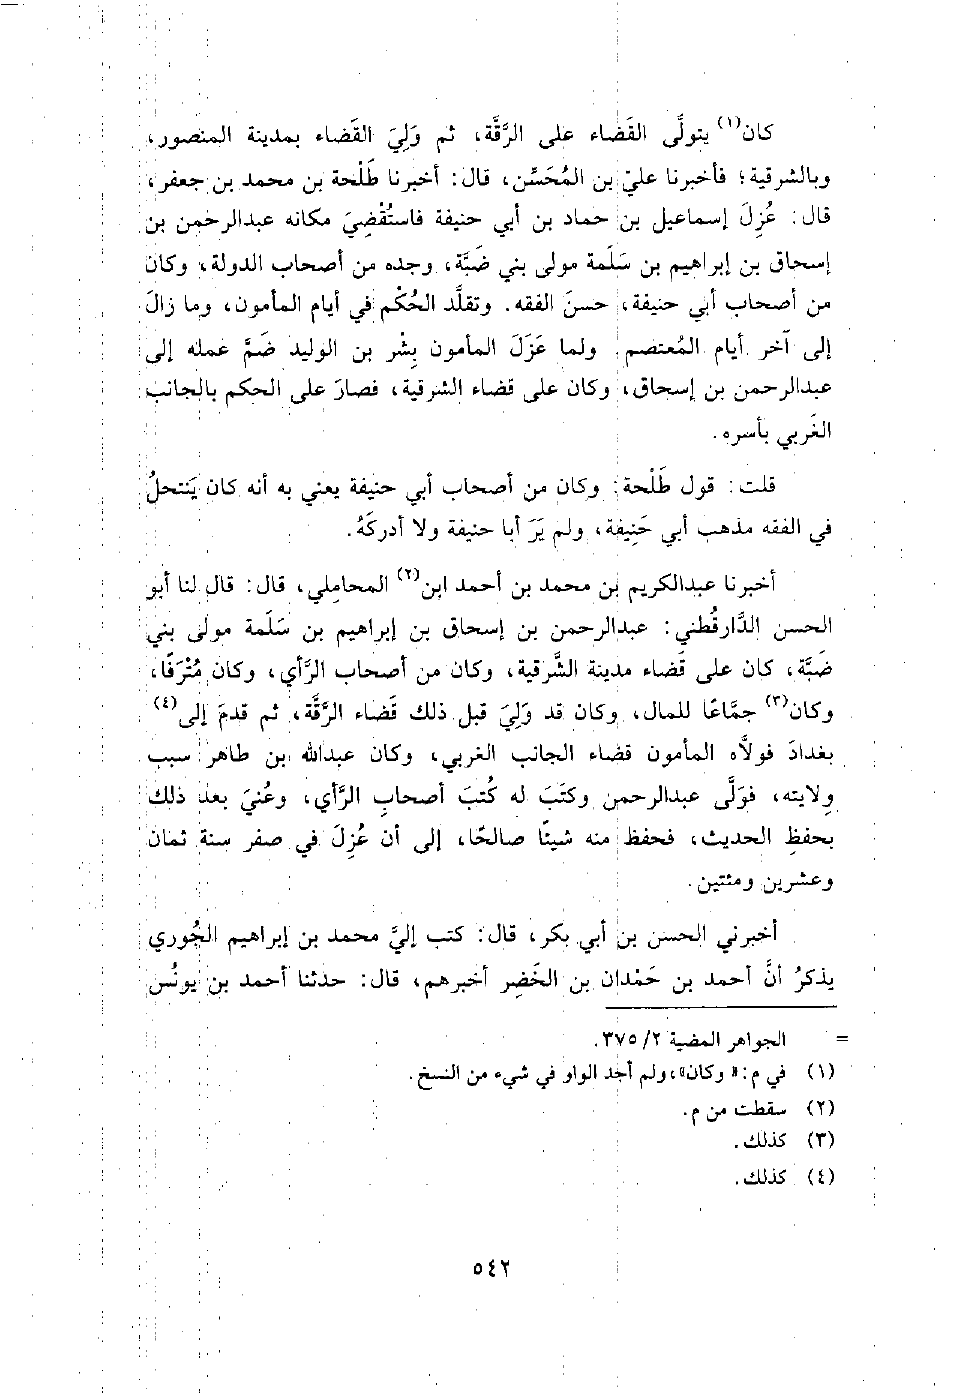 كان(١) يتولَّى القَضاء على الرَّقَّة، ثم وَلِيَ القَضاء بمدينة المنصور،
وبالشرقية؛ فأخبرنا عليّ بن المُحَسِّن، قال: أخبرنا طَلْحة بن محمد بن جعفر،
قال: عُزِلَ إسماعيل بن حماد بن أبي حنيفة فاستُقْضِيَ مكانه عبدالرحمن بن
إسحاق بن إبراهيم بن سَلَمة مولى بني ضَبَّة، وجده من أصحاب الدولة، وكان
من أصحاب أبي حنيفة، حسنَ الفقه. وتقلَّد الحُكْم في أيام المأمون، وما زالَ
إلى آخر أيام المُعتصم. ولما عَزَلَ المأمون بِشْر بن الوليد ضَمَّ عمله إلى
عبدالرحمن بن إسحاق، وكان على قضاء الشرقية، فصارَ على الحكم بالجانب
الغَربي بأسره.
قلت: قول طَلْحة: وكان من أصحاب أبي حنيفة يعني به أنه كان يَنتحلُ
في الفقه مذهب أبي حَنِيفة، ولم يَرَ أبا حنيفة ولا أدركَهُ.
أخبرنا عبدالكريم بن محمد بن أحمد ابن(٢) المحاملي، قال: قال لنا أبو
الحسن الدَّارقُطني: عبدالرحمن بن إسحاق بن إبراهيم بن سَلَمة مولى بني
ضَبَّة، كان على قَضاء مدينة الشَّرقية، وكان من أصحاب الرَّأي، وكان مُتْرَفًا،
وكان(٣) جمَّاعًا للمال، وكان قد وَلِيَ قبل ذلك قَضاء الرَّقَّة، ثم قدمَ إلى(٤)
بغدادَ فولاَّه المأمون قضاء الجانب الغربي، وكان عبدالله بن طاهر سبب
وِلايته، فوَلَّى عبدالرحمن وكتَبَ له كُتبَ أصحابِ الرَّأي، وعُنيَ بعد ذلك
بحفظِ الحديث، فحفظ منه شيئًا صالحًا، إلى أن عُزِلَ في صفر سنة ثمان
وعشرين ومئتين.
أخبرني الحسن بن أبي بكر، قال: كتب إليَّ محمد بن إبراهيم الجُوري
يذكرُ أنَّ أحمد بن حَمْدان بن الخَضِر أخبرهم، قال: حدثنا أحمد بن يونُس
= الجواهر المضية ٢/ ٣٧٥.
(١) في م: «وكان»، ولم أجد الواو في شيء من النسخ.
(٢) سقطت من م.
(٣) كذلك.
(٤) كذلك.
٥٤٢